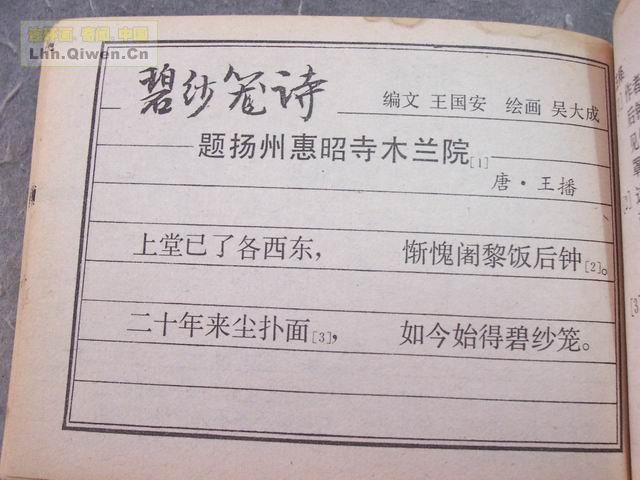 连环画.奇闻.中国
Lhh.Qiwen.Cn
碧纱笼诗
编文 王国安 绘画 吴大成
题扬州惠昭寺木兰院[1]
唐·王播
上堂已了各西东， 惭愧阇黎饭后钟[2]。
二十年来尘扑面[3]， 如今始得碧纱笼。
作者
后钟
见
[3]